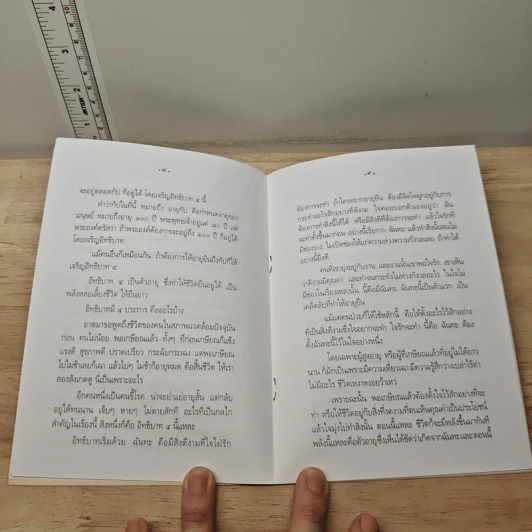 -๘-
จะอยู่ตลอดกัป ก็อยู่ได้ โดยเจริญอิทธิบาท ๔ นี้
คำว่ากัปในที่นี้ หมายถึง อายุกัป คือกำหนดอายุของ
มนุษย์ หมายถึงอายุ ๑๐๐ ปี พระพุทธเจ้าอยู่แค่ ๘๐ ปี แต่
พระองค์ตรัสว่า ถ้าพระองค์ต้องการจะอยู่ถึง ๑๐๐ ปี ก็อยู่ได้
โดยเจริญอิทธิบาท
แม้คนอื่นก็เหมือนกัน ถ้าต้องการให้อายุยืนถึงกัปก็ให้
เจริญอิทธิบาท ๔
อิทธิบาท ๔ เป็นตัวอายุ ซึ่งทำให้ชีวิตยืนอยู่ได้ เป็น
พลังหล่อเลี้ยงชีวิต ให้ยืนยาว
อิทธิบาทมี ๔ ประการ คืออะไรบ้าง
อาตมาขอพูดถึงชีวิตของคนในสภาพแวดล้อมปัจจุบัน
ก่อน คนไม่น้อย พอเกษียณแล้ว ทั้งๆ ที่ก่อนเกษียณก็แข็ง
แรงดี สุขภาพดี ปราดเปรียว กระฉับกระเฉง แต่พอเกษียณ
ไปไม่ช้าเลยก็เฉา แล้วไปๆ ไม่ช้าก็อายุหมด คือสิ้นชีวิต ให้เรา
ลองสังเกตดู นี่เป็นเพราะอะไร
อีกคนหนึ่งเป็นคนขี้โรค น่าจะย่ำแย่อายุสั้น แต่กลับ
อยู่ได้ทนนาน เจ็บๆ หายๆ ไม่ตายสักที อะไรที่เป็นกลไก
สำคัญในเรื่องนี้ สิ่งหนึ่งก็คือ อิทธิบาท ๔ นี้แหละ
อิทธิบาทเริ่มด้วย ฉันทะ คือมีสิ่งดีงามที่ใจใฝ่รัก
-๙-
ต้องการจะทำ ถ้าใครอยากอายุยืน ต้องมีจิตใจผูกอยู่กับการ
กระทำอะไรสักอย่างที่ดีงาม ใจคอยบอกตัวเองอยู่ว่า ฉัน
ต้องการทำสิ่งนี้ให้ได้ หรือมีสิ่งดีที่ต้องการจะทำ แล้วใจรักที่
จะทำสิ่งนั้น
คนที่เขายุ่งอยู่กับงาน และงานนั้นเขาพอใจรัก เขาเห็น
ว่าดีงามมีคุณค่า
เคล็ดลับที่ทำให้อายุยืน
แม้แต่คนป่วยก็ใช้หลักนี้ คือให้ตั้งอะไรไว้สักอย่าง
ที่เป็นสิ่งดีงามซึ่งใจอยากจะทำ ใจรักจะทำ นี้คือ ฉันทะ ต้อง
ตั้งฉันทะนี้ไว้ในใจอย่างหนึ่ง
โดยเฉพาะผู้สูงอายุ หรือผู้ที่เกษียณแล้วที่อยู่ไม่ได้ยาว
นาน ก็มักเป็นเพราะมีความเหี่ยวเฉา มีความรู้สึกว่างเปล่าไร้ค่า
ไม่มีอะไร ชีวิตเหงาหงอยว้าเหว่
เพราะฉะนั้น พอเกษียณแล้วต้องตั้งใจไว้สักอย่างที่จะ
ทำ หรือให้ชีวิตอยู่กับสิ่งดีงามที่ตนเห็นคุณค่าเป็นประโยชน์
แล้วใจมุ่งไปทำสิ่งนั้น ตอนนี้แหละ ชีวิตก็จะมีพลังขึ้นมาทันที
พลังนี้แหละคือตัวอายุซึ่งเห็นได้ชัดว่าเกิดจากฉันทะ และตอนนี้